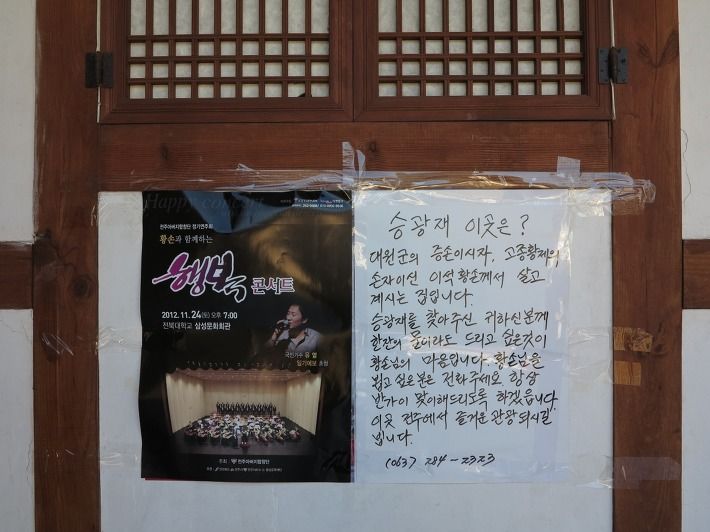 Happy concert
전주아버지합창단 정기연주회
황손과 함께하는
행복 콘서트
2012. 11. 24(토) 오후 7:00
전북대학교 삼성문화회관
국민가수 유 열
일기예보 초청
주최 : 전주아버지합창단
승광재 이곳은?
대원군의 증손이시자, 고종황제의
손자이신 이석황손께서 살고
계시는 집입니다.
승광재를 찾아주신 귀하신분께
한잔의 물이라도 드리고 싶은것이
황손님의 마음입니다. 황손님을
뵙고 싶은분은 전화주세요. 항상
반가이 맞이해드리도록 하겠습니다.
이곳 전주에서 즐거운 관광되시길
빕니다.
(063) 284-2323